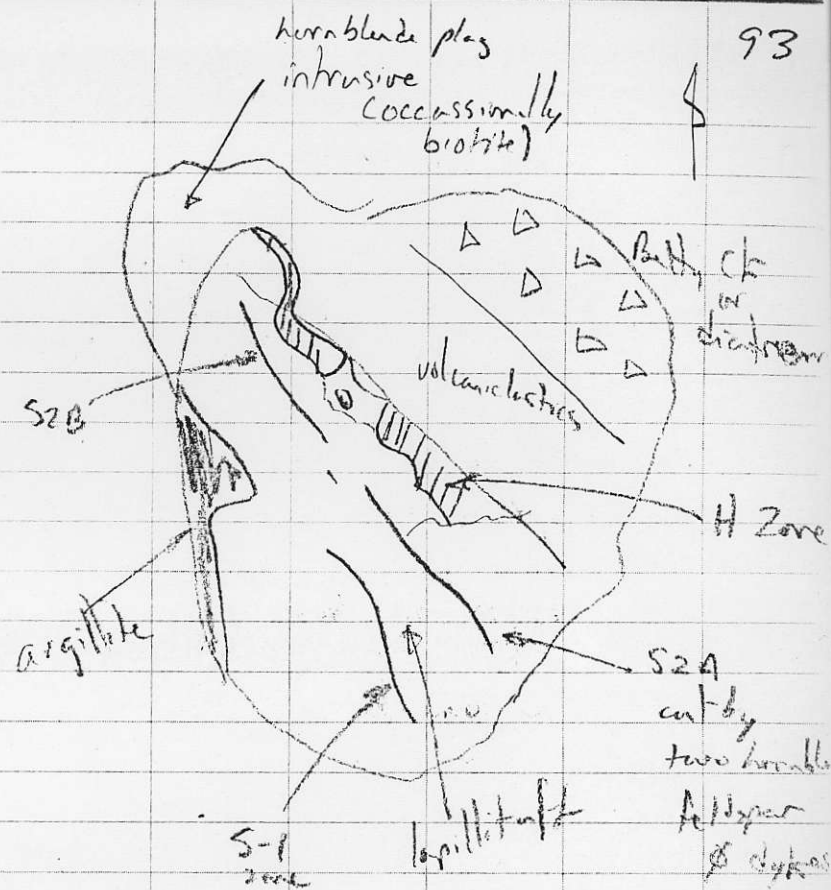 93
hornblende plag
intrusive
(occassionally
biotite)
Betty Ck
or
diatreme
volcaniclastics
S2B
H Zone
argillite
S2A
cut by
two hornble
feldspar
φ dykes
S-1
zone
lapilli tuff